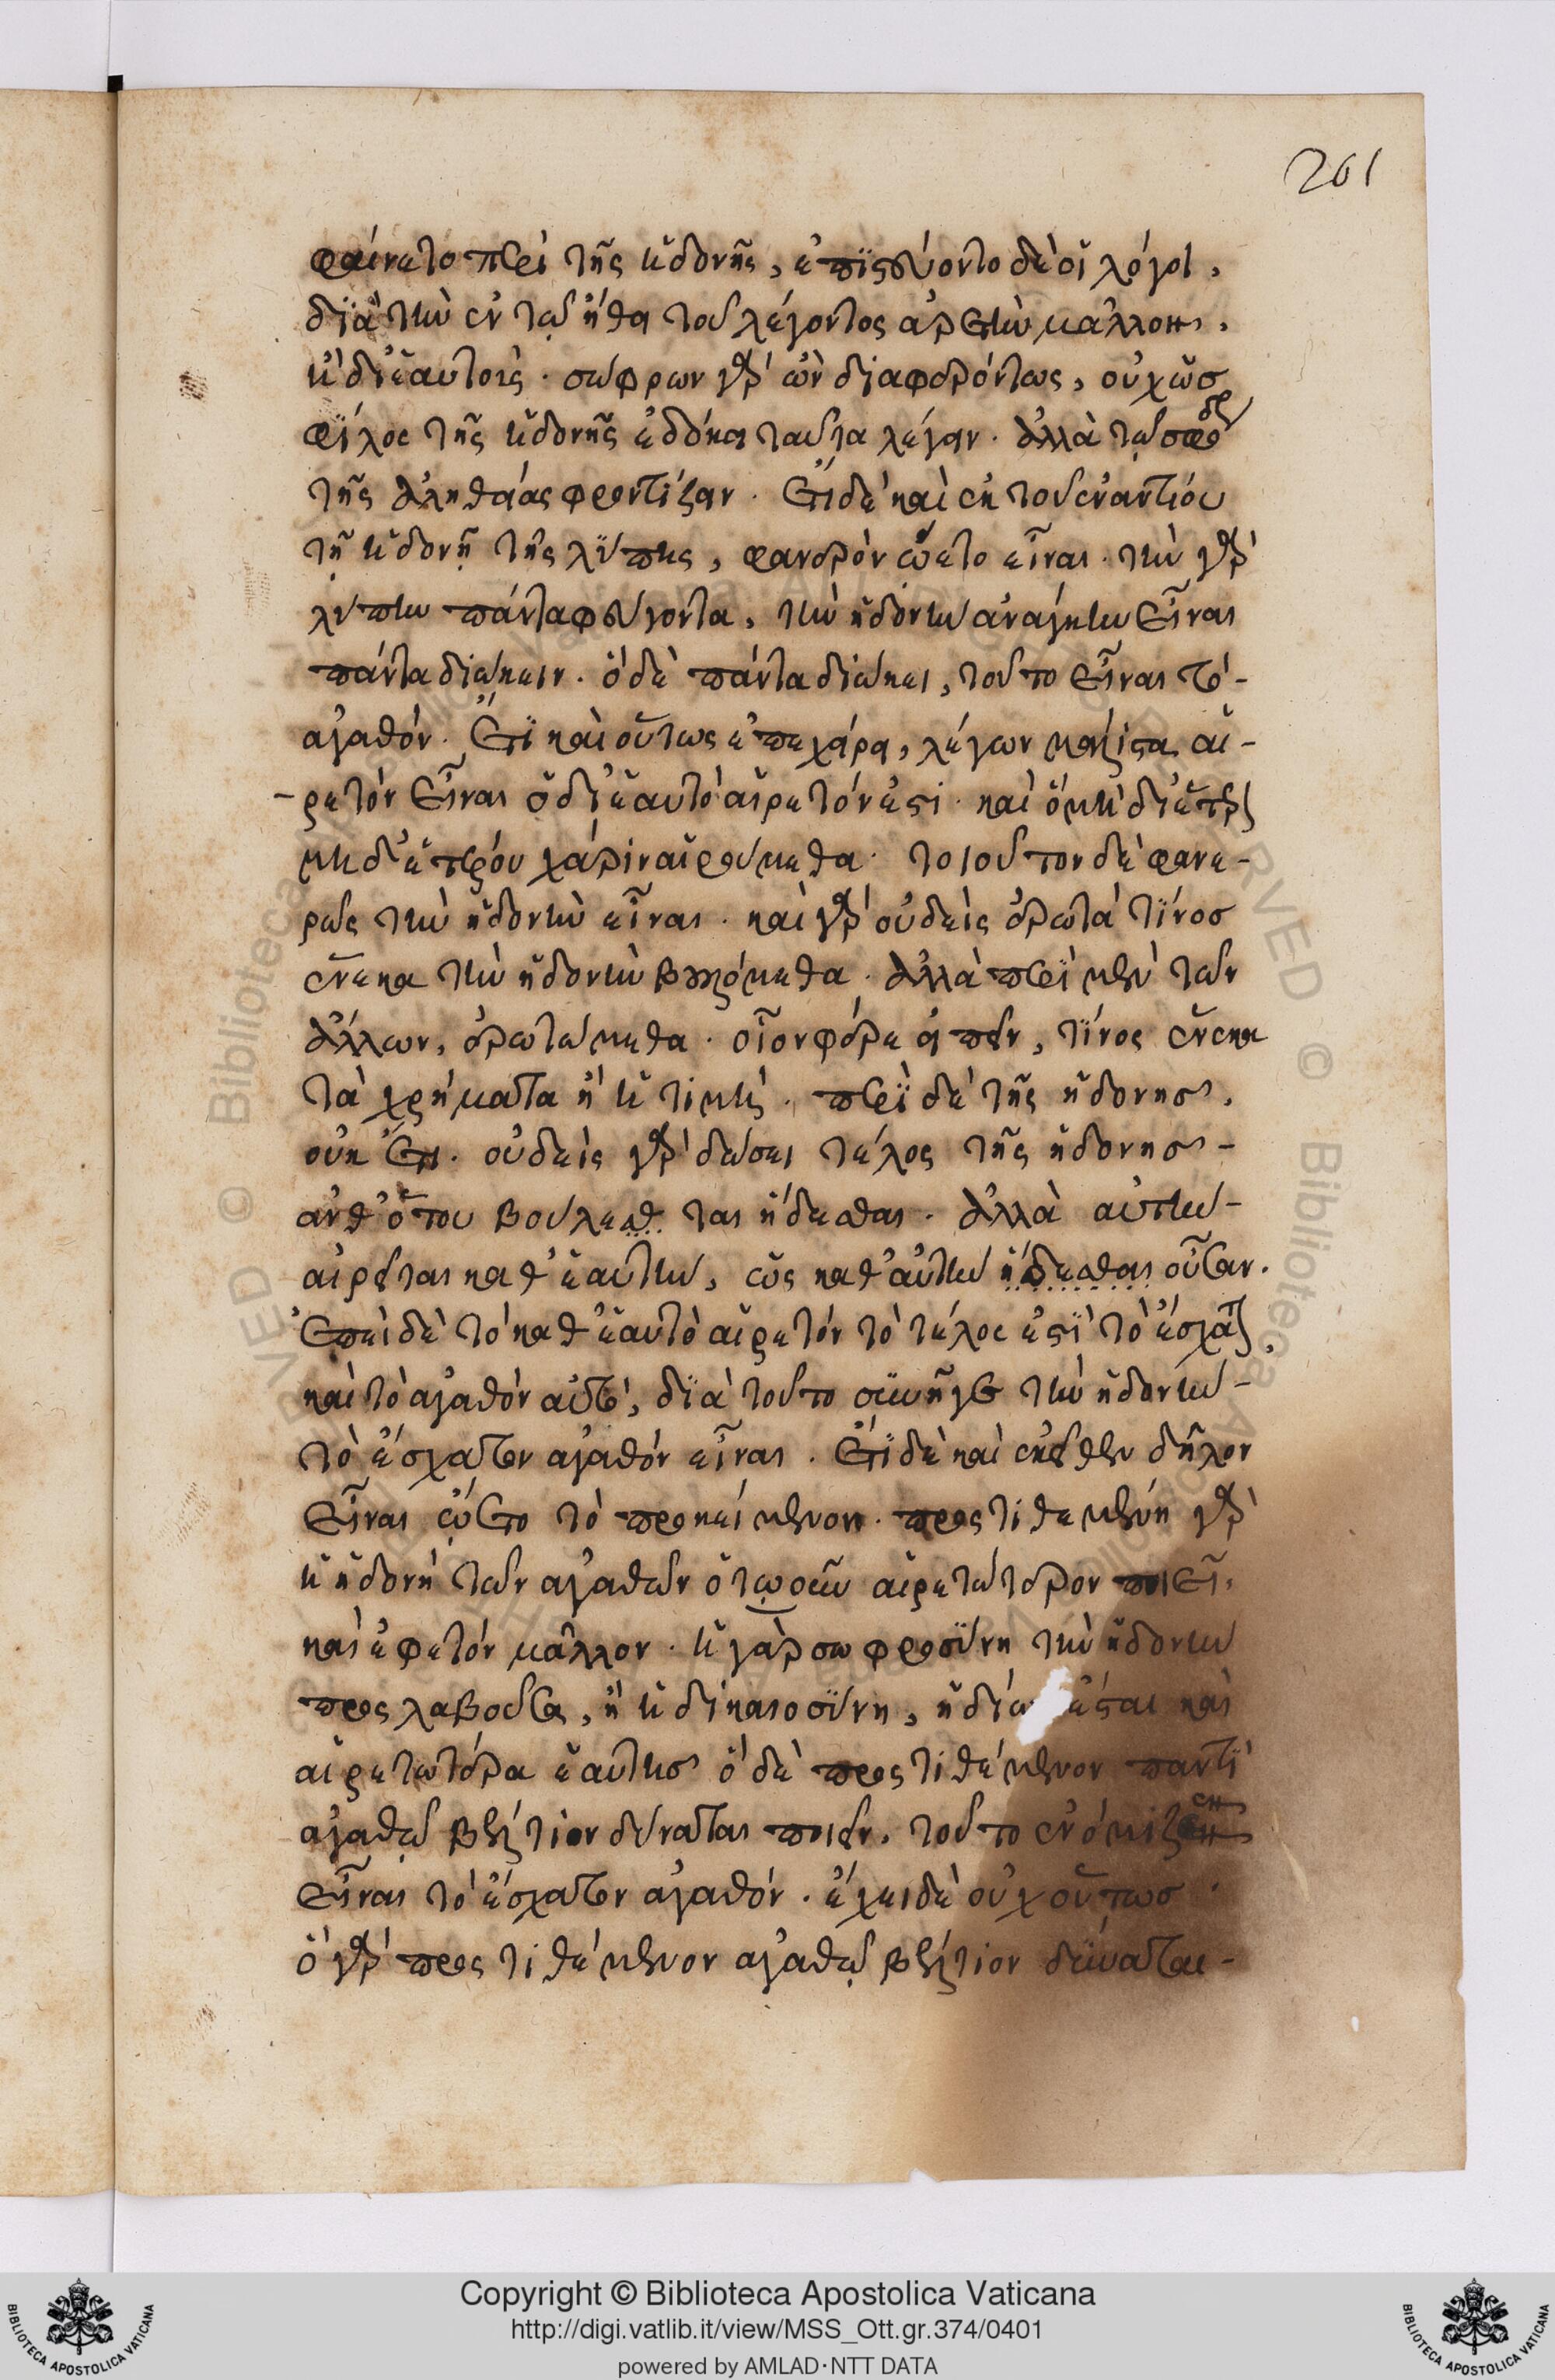 201
φαίνετο περὶ τῆς ἡδονῆς, ἐπιστεύοντο δὲ οἱ λόγοι,
διὰ τὴν ἐν τῷ ἤθει τοῦ λέγοντος ἀρετὴν μᾶλλον,
ἢ δι' ἑαυτοὺς. σώφρων γὰρ ὢν διαφερόντως, οὐχ ὡς
φίλος τῆς ἡδονῆς ἐδόκει ταῦτα λέγειν. ἀλλὰ τῷ σφόδρ
τῆς ἀληθείας φροντίζειν. Ἔτι δὲ καὶ ἐκ τοῦ ἐναντίου
τῇ ἡδονῇ τῆς λύπης, φανερὸν ᾤετο εἶναι. τὴν γὰρ
λύπην πάντα φεύγοντα, τὴν ἡδονὴν ἀνάγκην εἶναι
πάντα διώκειν. ὃ δὲ πάντα διώκει, τοῦτο εἶναι τὸ -
ἀγαθόν. Ἔτι καὶ οὕτως ἐπεχείρει, λέγων μάλιστα αἱ -
- ρετὸν εἶναι ὃ δι' ἑαυτὸ αἱρετόν ἐστι. καὶ ὃ μὴ δι' ἕτερον
μηδ' ἑτέρου χάριν αἱρούμεθα. τοιοῦτον δὲ φανε -
ρῶς τὴν ἡδονὴν εἶναι. καὶ γὰρ οὐδεὶς ἐρωτᾷ τίνος
ἕνεκα τὴν ἡδονὴν βουλόμεθα. ἀλλὰ περὶ μὲν τῶν
ἄλλων, ἐρωτώμεθα. οἷον φέρε εἰπεῖν, τίνος ἕνεκα
τὰ χρήματα ἢ ἡ τιμὴ. περὶ δὲ τῆς ἡδονῆς,
οὐκ ἔτι. οὐδεὶς γὰρ δώσει τέλος τῆς ἡδονῆς -
ἀνθ' ὅτου βούλεσθ ται ἥδεσθαι. ἀλλὰ αὐτὴν -
αἱρεῖται καθ' ἑαυτὴν, ὡς καθ' αὑτὴν ἥδεσθαι οὖσαν.
Ἐπεὶ δὲ τὸ καθ' ἑαυτὸ αἱρετόν τὸ τέλος ἐστὶ τὸ ἔσχατον,
καὶ τὸ ἀγαθὸν αὐτό, διὰ τοῦτο συνῆγε τὴν ἡδονὴν -
τὸ ἔσχατον ἀγαθόν εἶναι. Ἔτι δὲ καὶ ἐκεῖθεν δῆλον
εἶναι ᾤετο τὸ προκείμενον. προστιθεμένη γὰρ
ἡ ἡδονὴ τῶν ἀγαθῶν ὁτῳοῦν αἱρετώτερον ποιεῖ,
καὶ ἐφετόν μᾶλλον. ἡ γὰρ σωφροσύνη τὴν ἡδονὴν
προσλαβοῦσα, ἢ ἡ δικαιοσύνη, ἡδίω ἔσται καὶ
αἱρετωτέρα ἑαυτῆς ὃ δὲ προστιθέμενον παντὶ
ἀγαθῷ βέλτιον δύναται ποιεῖν, τοῦτο ἐνόμιζεν
εἶναι τὸ ἔσχατον ἀγαθόν. ἔχει δὲ οὐχ οὕτως.
ὃ γὰρ προστιθέμενον ἀγαθῷ βέλτιον δύναται -
Copyright © Biblioteca Apostolica Vaticana
http://digi.vatlib.it/view/MSS_Ott.gr.374/0401
powered by AMLAD·NTT DATA
BIBLIOTECA APOSTOLICA VATICANA
BIBLIOTECA APOSTOLICA VATICANA